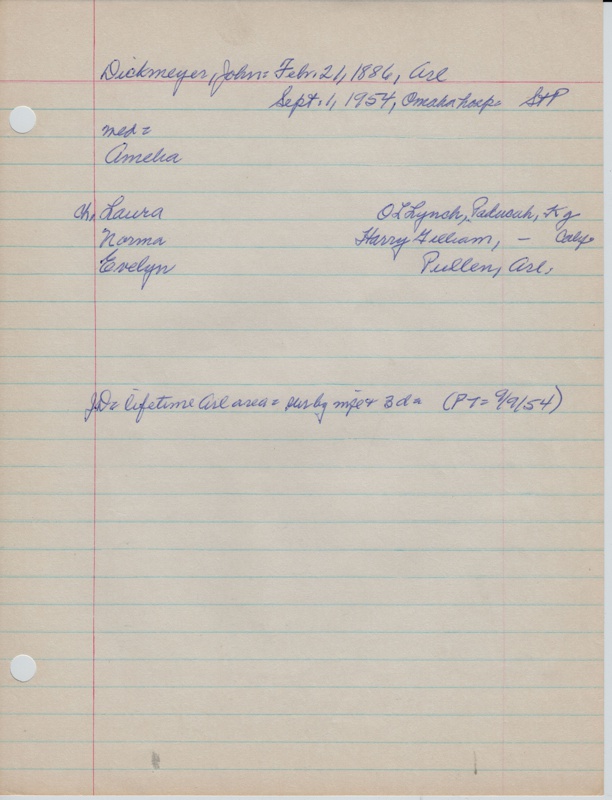 Dickmeyer, John = Febr. 21, 1886, Arl
Sept. 1, 1954, Omaha hosp = StP
med =
Amelia
ch, Laura O L Lynch, Paducah, Ky
Norma Harry Gilliam, - Calif
Evelyn Pullen, Arl.
JD = lifetime Arl area = sur by wife + 3 da (PT = 9/9/54)